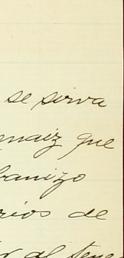 se sirva
maiz que
banizo
rios de